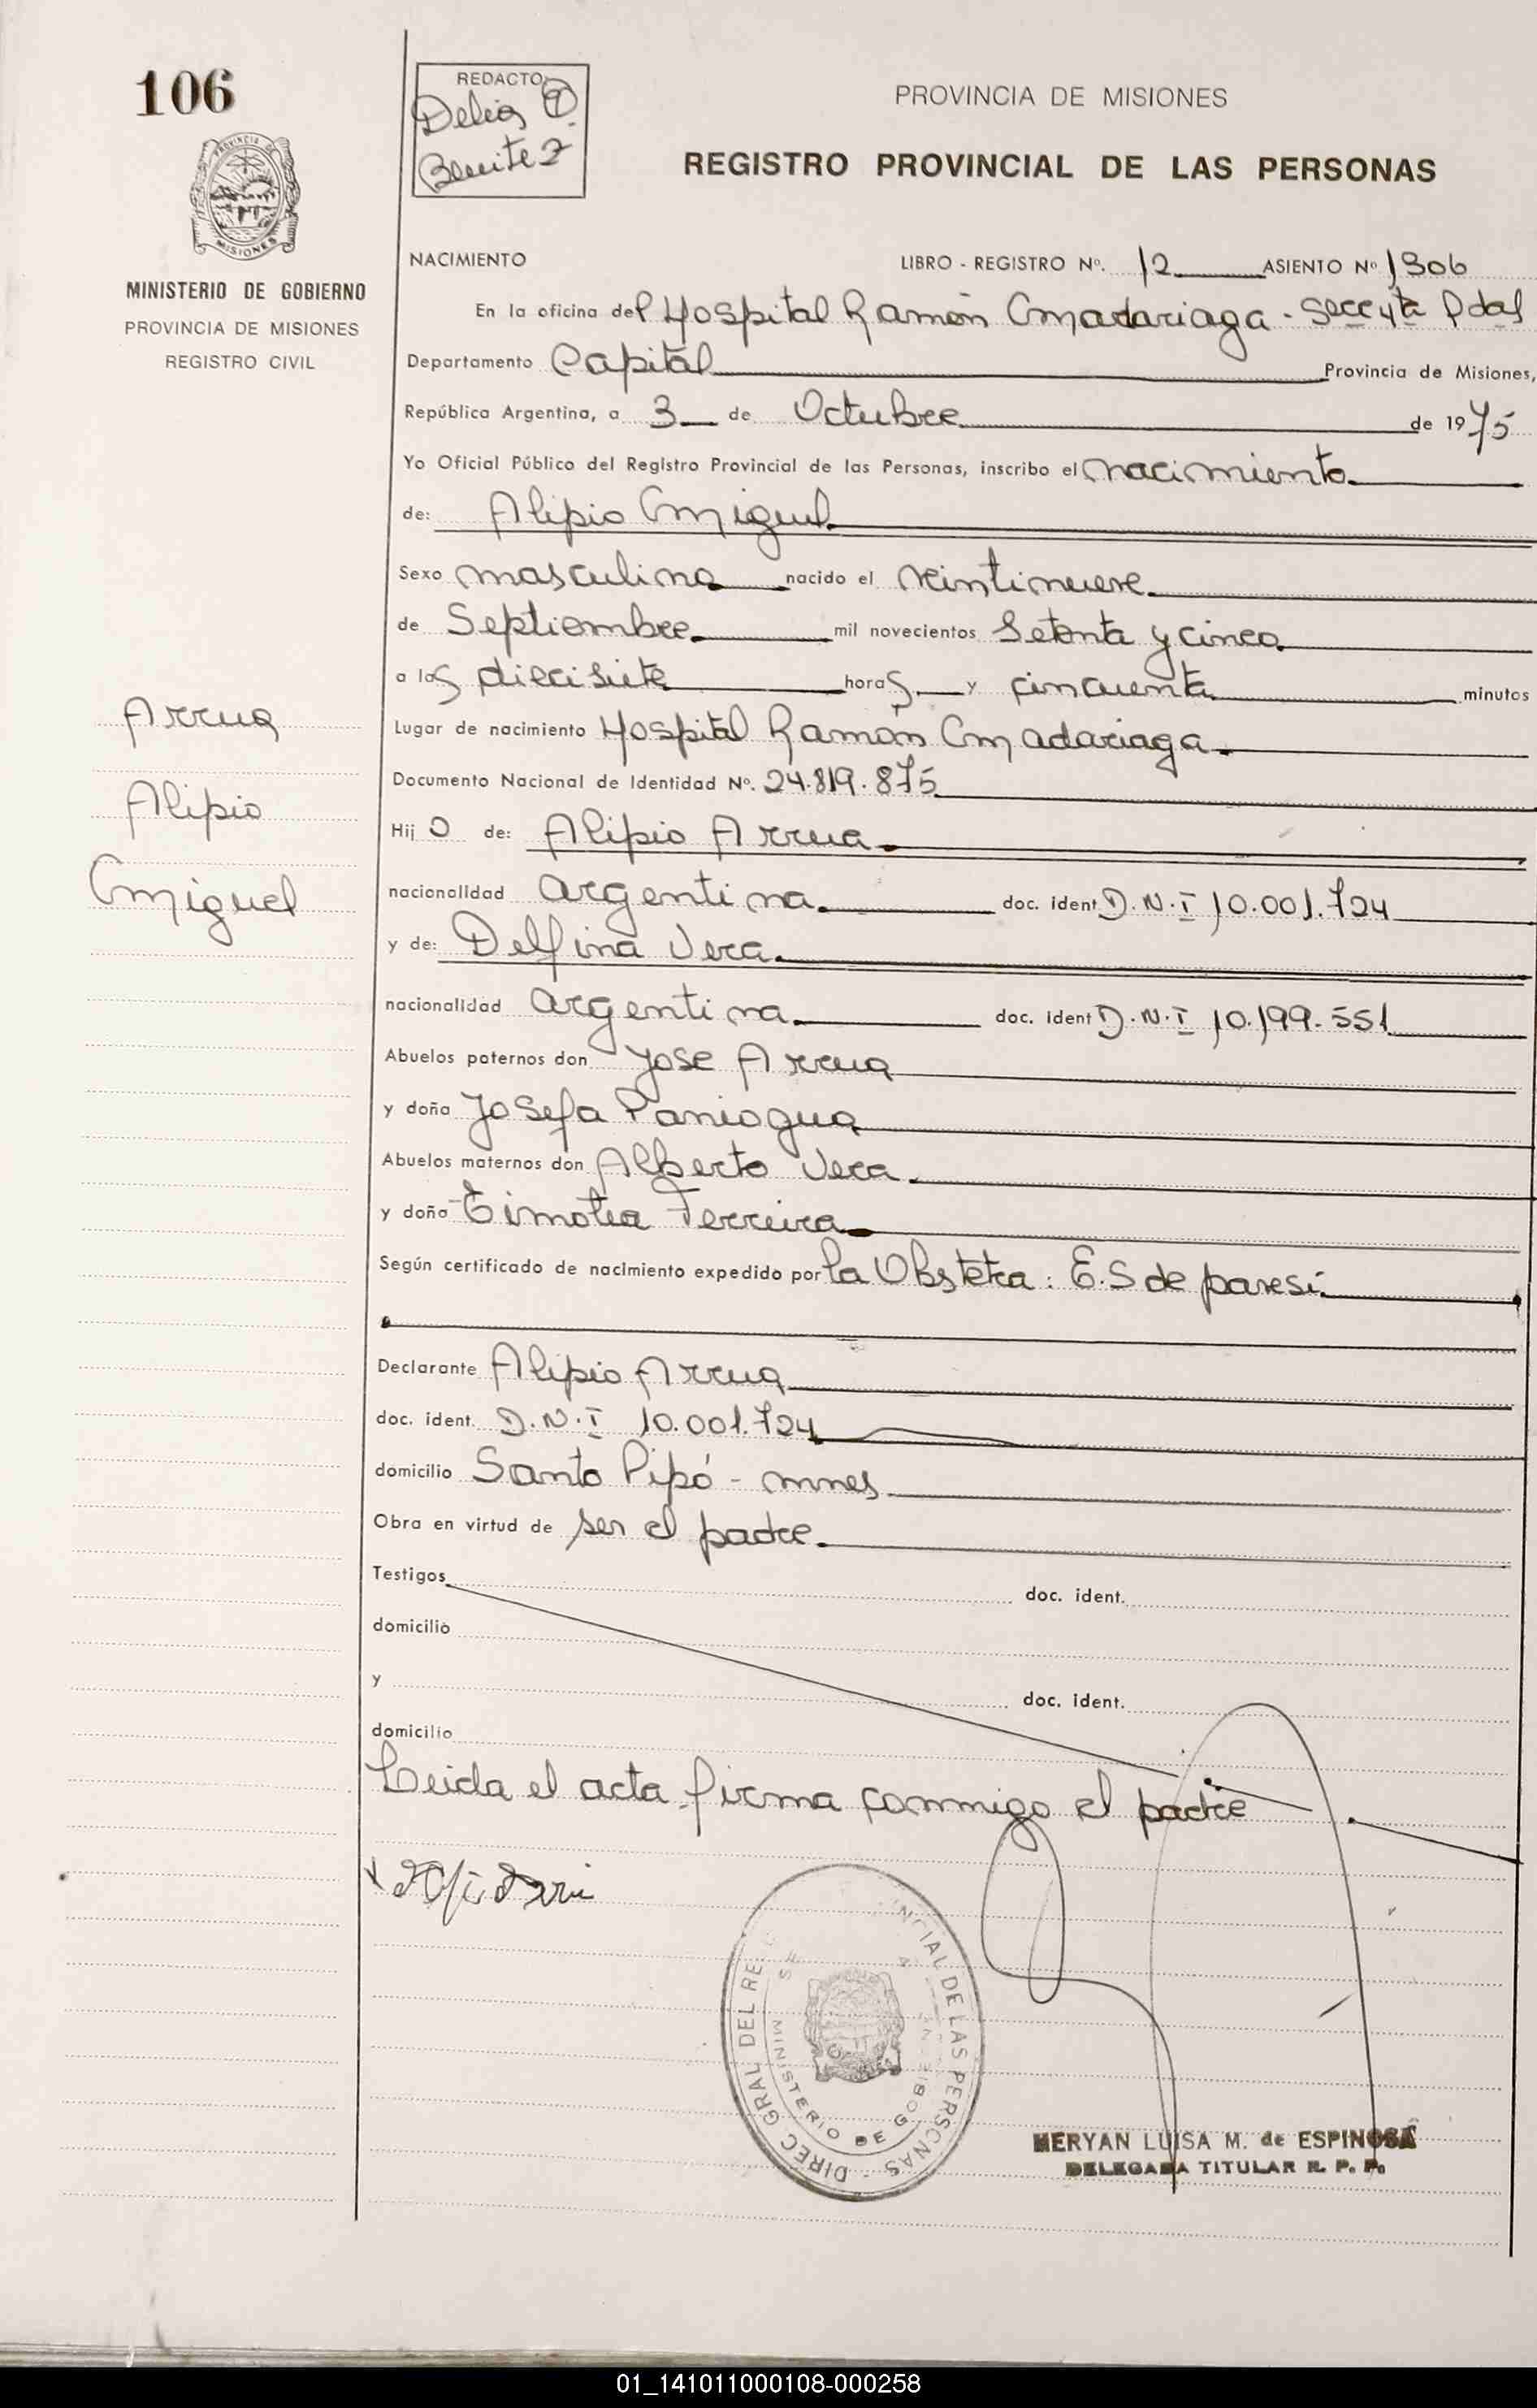 106
REDACTO:
Delia
Benitez
PROVINCIA DE MISIONES
REGISTRO PROVINCIAL DE LAS PERSONAS
PROVINCIA DE
MISIONES
MINISTERIO DE GOBIERNO
PROVINCIA DE MISIONES
REGISTRO CIVIL
NACIMIENTO LIBRO - REGISTRO Nº. 12 ASIENTO Nº 1306
En la oficina del Hospital Ramón Madariaga - Secc 4ta Pdas
Departamento Capital Provincia de Misiones,
República Argentina, a 3 de Octubre de 1975
Yo Oficial Público del Registro Provincial de las Personas, inscribo el nacimiento
de: Alipio Miguel
Sexo masculino nacido el veintinueve
de Septiembre mil novecientos Setenta y cinco
a las diecisiete horas y cincuenta minutos
Lugar de nacimiento Hospital Ramón Madariaga
Documento Nacional de Identidad Nº. 24.819.875
Hijo de: Alipio Arrua
nacionalidad argentina doc. ident D.N.I 10.001.724
y de: Delfina Vera
nacionalidad argentina doc. ident D.N.I 10.199.551
Abuelos paternos don Jose Arrua
y doña Josefa Paniagua
Abuelos maternos don Alberto Vera
y doña Timotea Ferreira
Según certificado de nacimiento expedido por la Obstetra: E.S de paresi
Declarante Alipio Arrua
doc. ident. D.N.I 10.001.724
domicilio Santo Pipó - mnes
Obra en virtud de ser el padre
Testigos doc. ident.
domicilio
y doc. ident.
domicilio
Leida el acta firma conmigo el padre
Arrua
Alipio
Miguel
DIREC GRAL DEL RE INCIAL DE LAS PERSONAS
MINISTERIO DE GOBIE
MERYAN LUISA M. de ESPINOSA
DELEGADA TITULAR R. P. P.
01_141011000108-000258